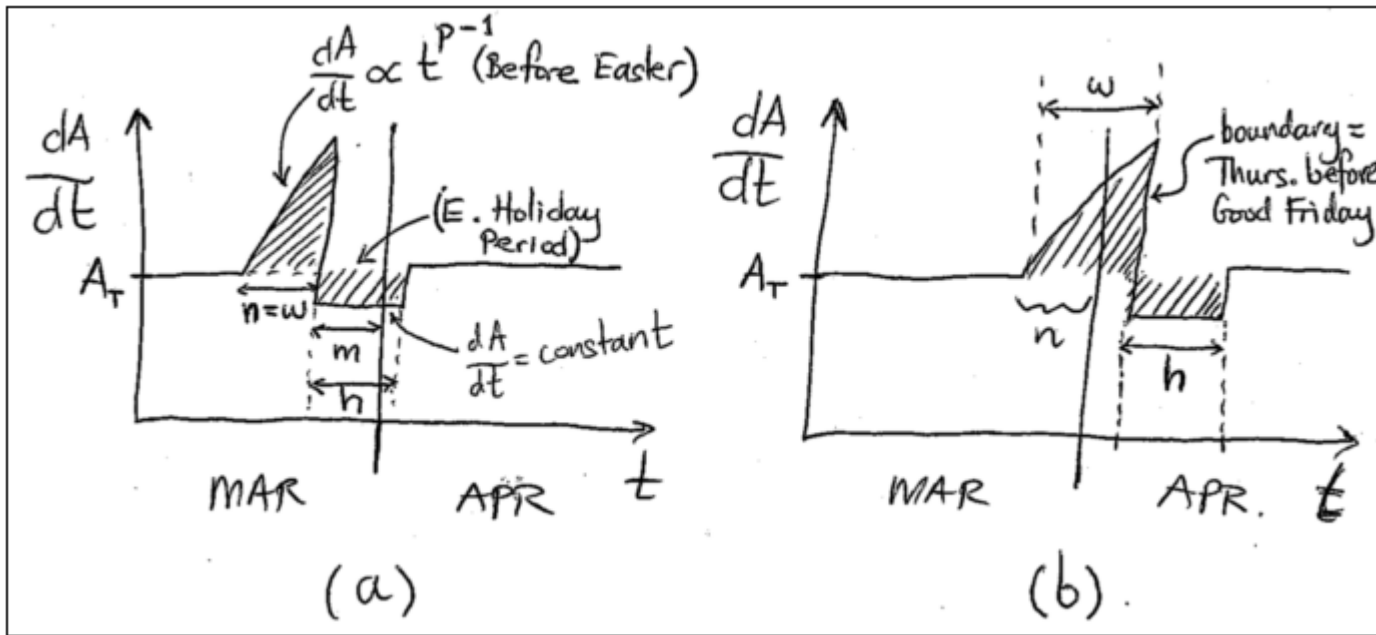 dA/dt ∝ t^p-1 (Before Easter)
dA/dt
A_T
(E. Holiday
Period)
n=w
m
h
dA/dt = constant
MAR
APR
t
(a)
dA/dt
w
boundary =
Thurs. before
Good Friday
A_T
n
h
MAR
APR.
t
(b).